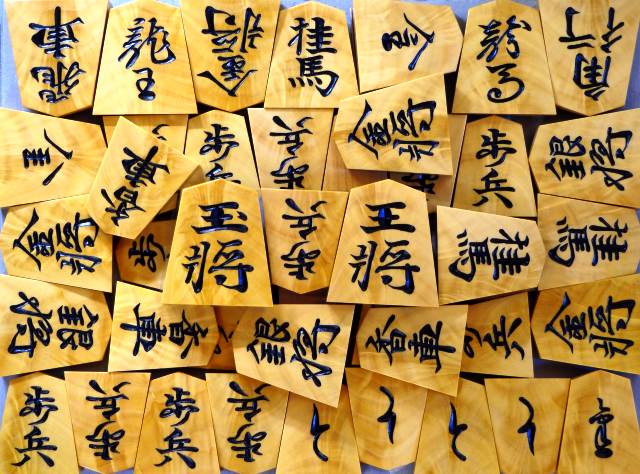 飛車
龍王
金将
桂馬
全
龍馬
角行
金
歩兵
歩兵
金将
歩兵
銀将
香車
金将
玉将
歩兵
王将
桂馬
桂馬
銀将
香車
銀将
香車
兵
金将
歩兵
歩兵
歩兵
歩兵
と
と
と
と